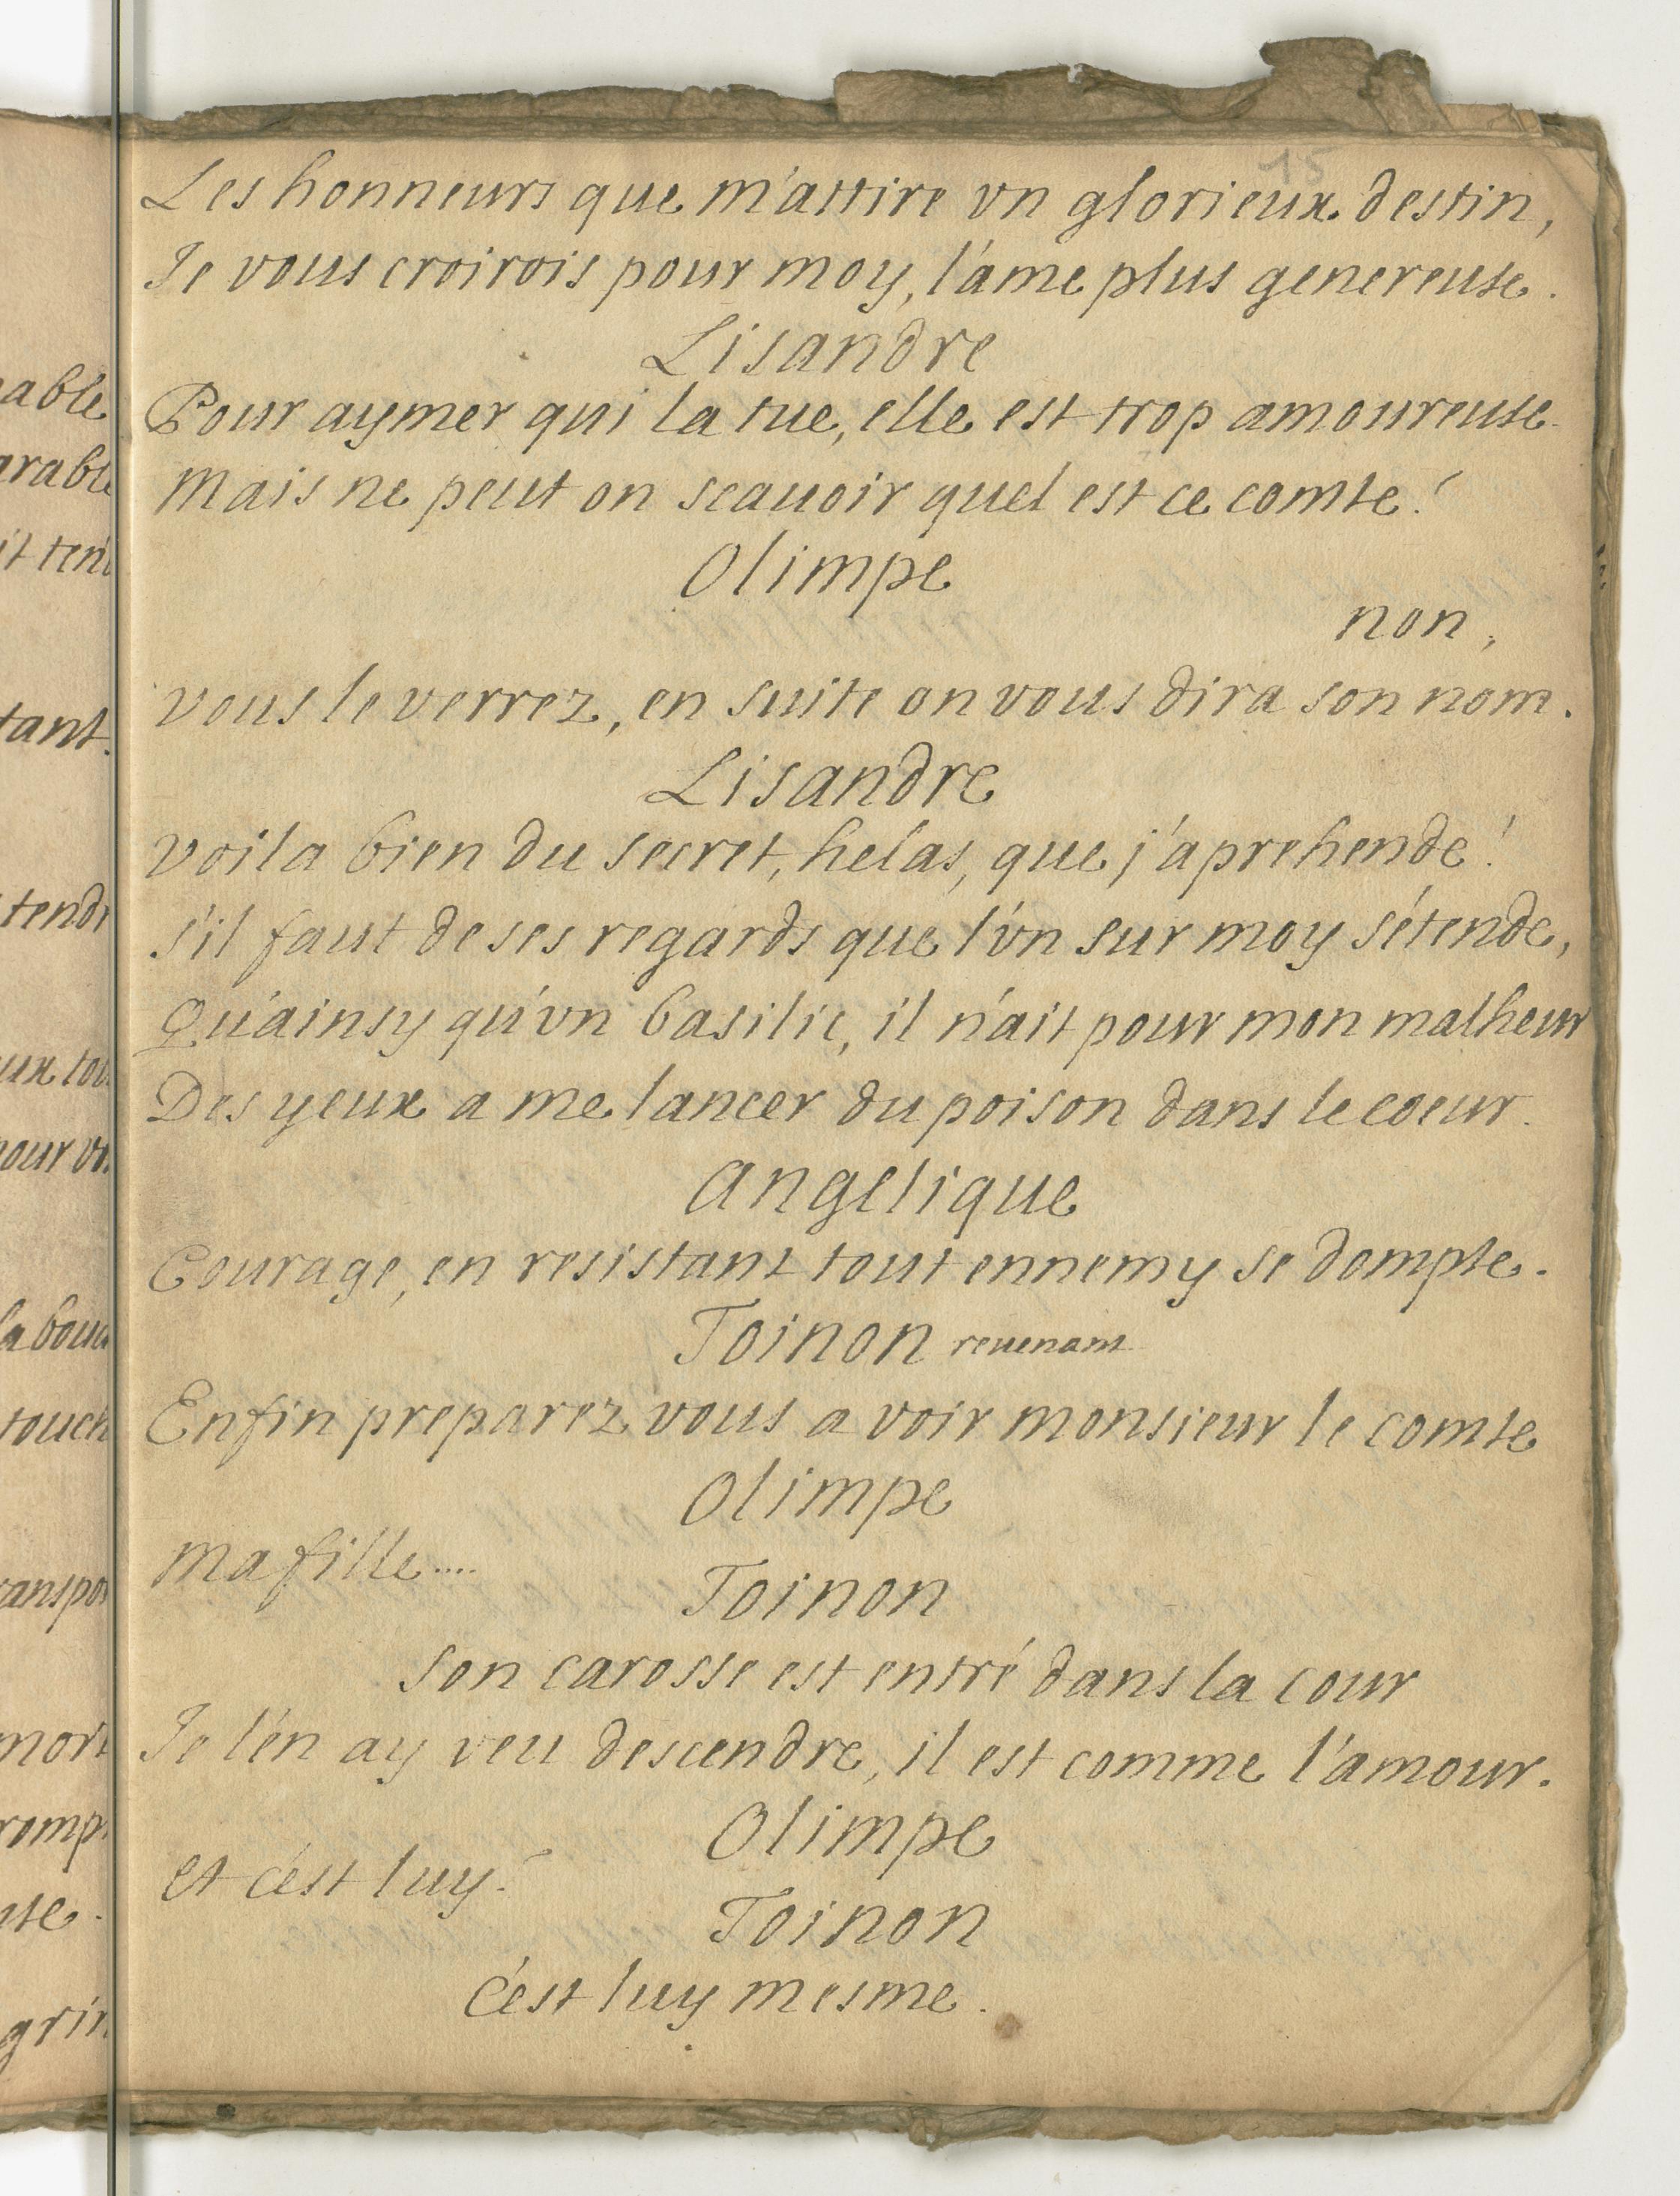 15
Les honneurs que m'attire vn glorieux destin,
Je vous croirois pour moy, l'ame plus genereuse.
Lisandre
Pour aymer qui la tue, elle est trop amoureuse
Mais ne peut on scauoir quel est ce comte?
Olimpe
non,
vous le verrez, en suite on vous dira son nom.
Lisandre
voila bien du secret, helas, que j'aprehende!
s'il faut de ses regards que l'vn sur moy s'étende,
Qu'ainsy qu'vn basilic, il n'ait pour mon malheur
Des yeux a me lancer du poison dans le coeur.
Angelique
Courage, en resistant tout ennemy se dompte.
Toinon reuenant
Enfin preparez vous a voir monsieur le comte
Olimpe
Ma fille....
Toinon
son carosse est entré dans la cour
Je l'en ay veu descendre, il est comme l'amour.
Olimpe
et c'est luy?
Toinon
c'est luy mesme.
able
arable
it ten
tant.
tendr
ux tou
pour vo
la bouc
touch
anspor
mort
romp
use.
grin